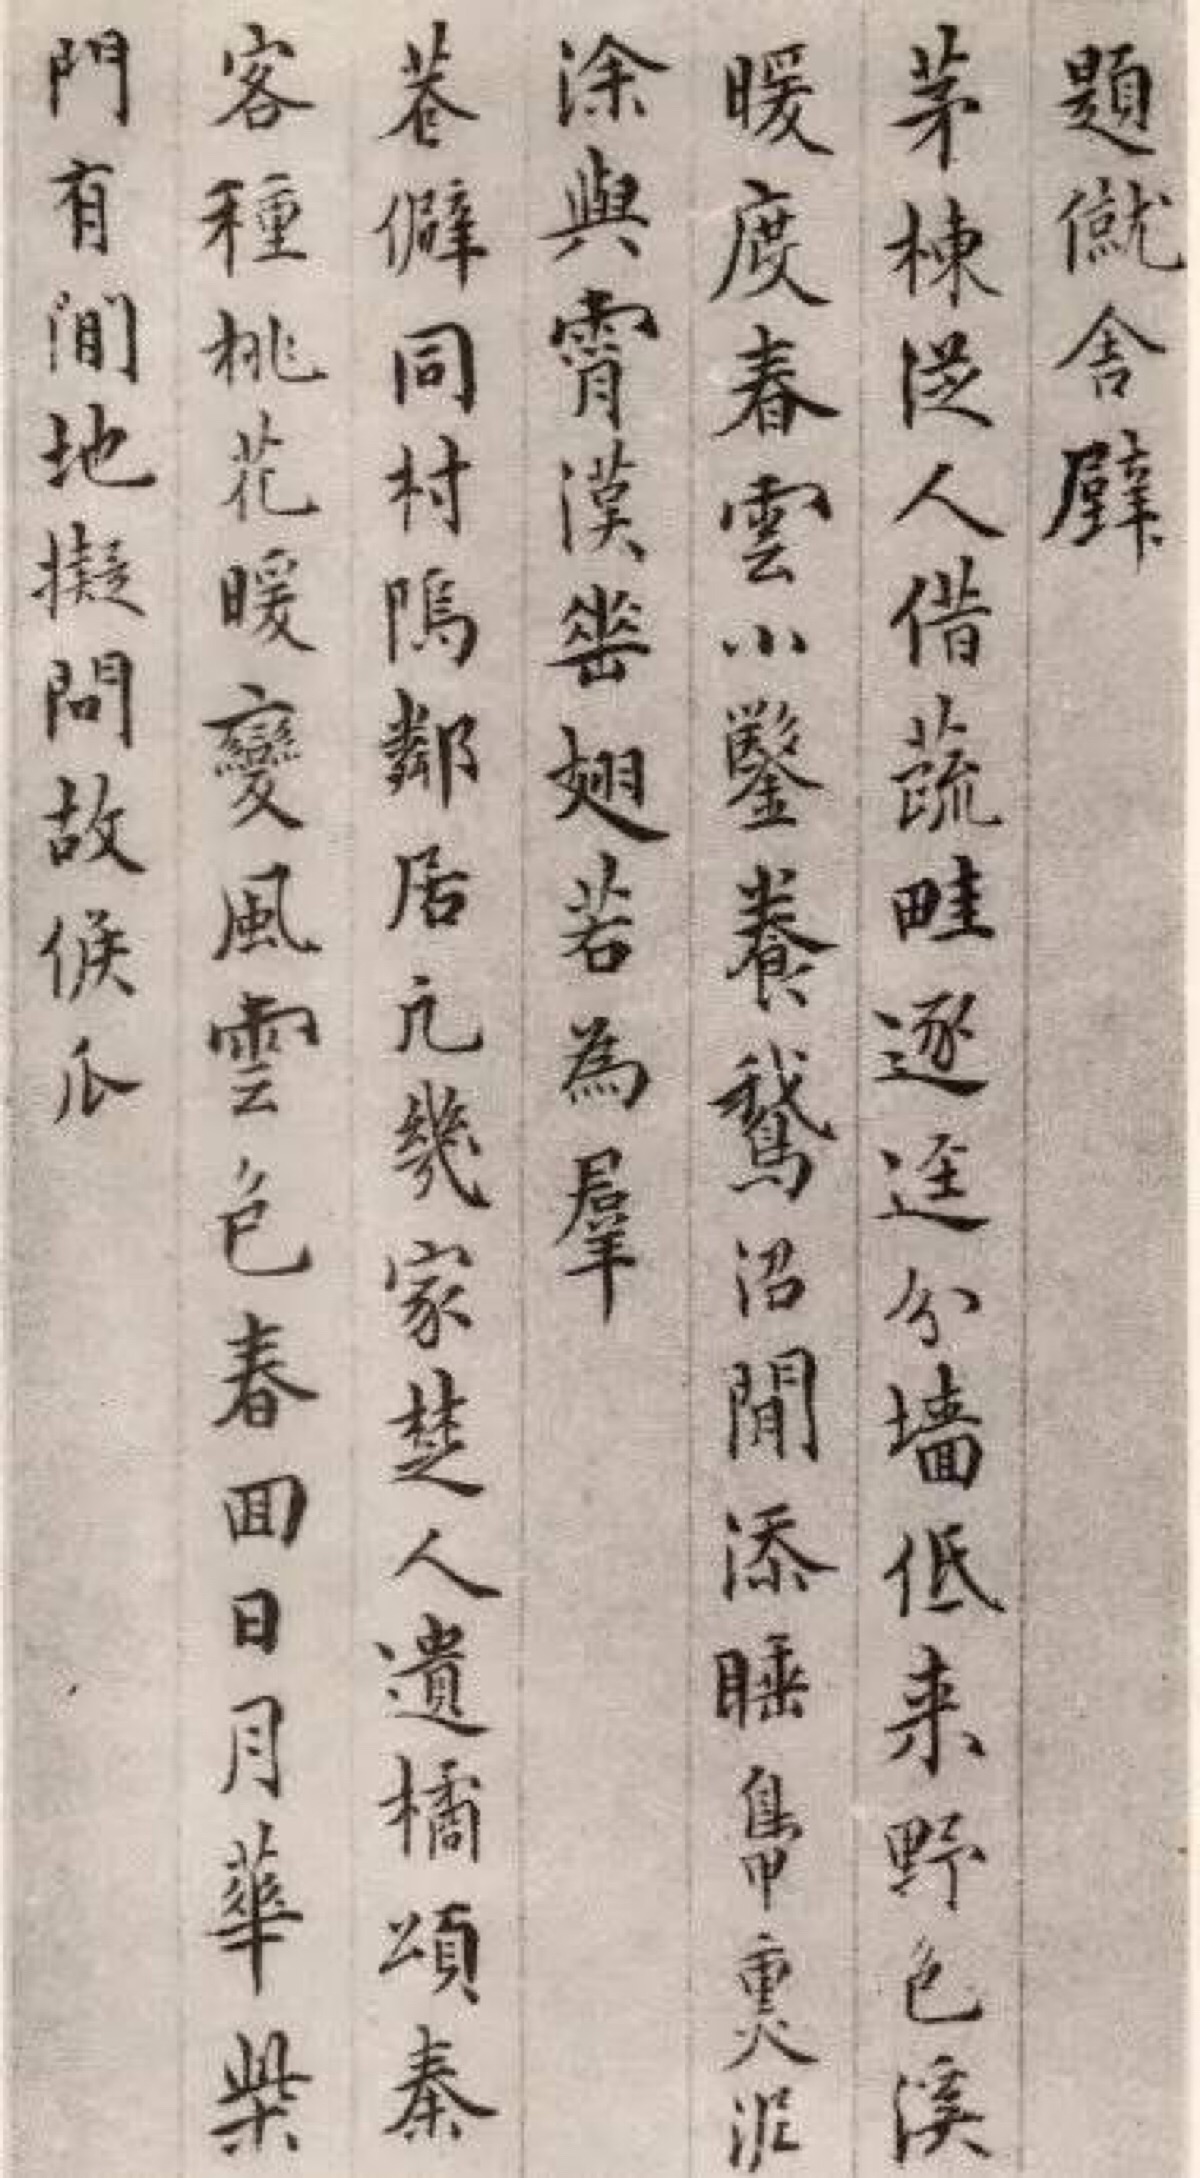 題僦舍壁
茅棟從人借蔬畦逐逕分墻低来野色溪
暖度春雲小鑿養鵝沼閒添睡鳧熏泥
涂與霄漢垂翅若為羣
巷僻同村隖鄰居亢幾家楚人遺橘頌秦
客種桃花暖變風雲色春回日月華柴
門有閒地擬問故侯瓜